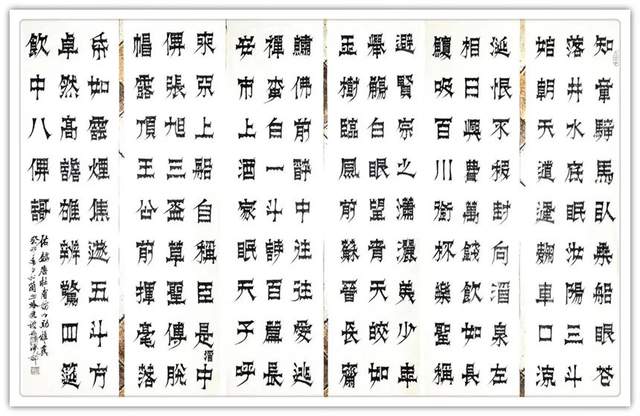 知章騎馬似乘船眼花
落井水底眠汝陽三斗
始朝天道逢麴車口流
涎恨不移封向酒泉左
相日興費萬錢飲如長
鯨吸百川銜杯樂聖稱
避賢宗之瀟灑美少年
舉觴白眼望青天皎如
玉樹臨風前蘇晉長齋
繡佛前醉中往往愛逃
禪李白一斗詩百篇長
安市上酒家眠天子呼
來不上船自稱臣是酒中
僊張旭三盃草聖傳脫
帽露頂王公前揮毫落
紙如雲煙焦遂五斗方
卓然高談雄辯驚四筵
飲中八僊謌